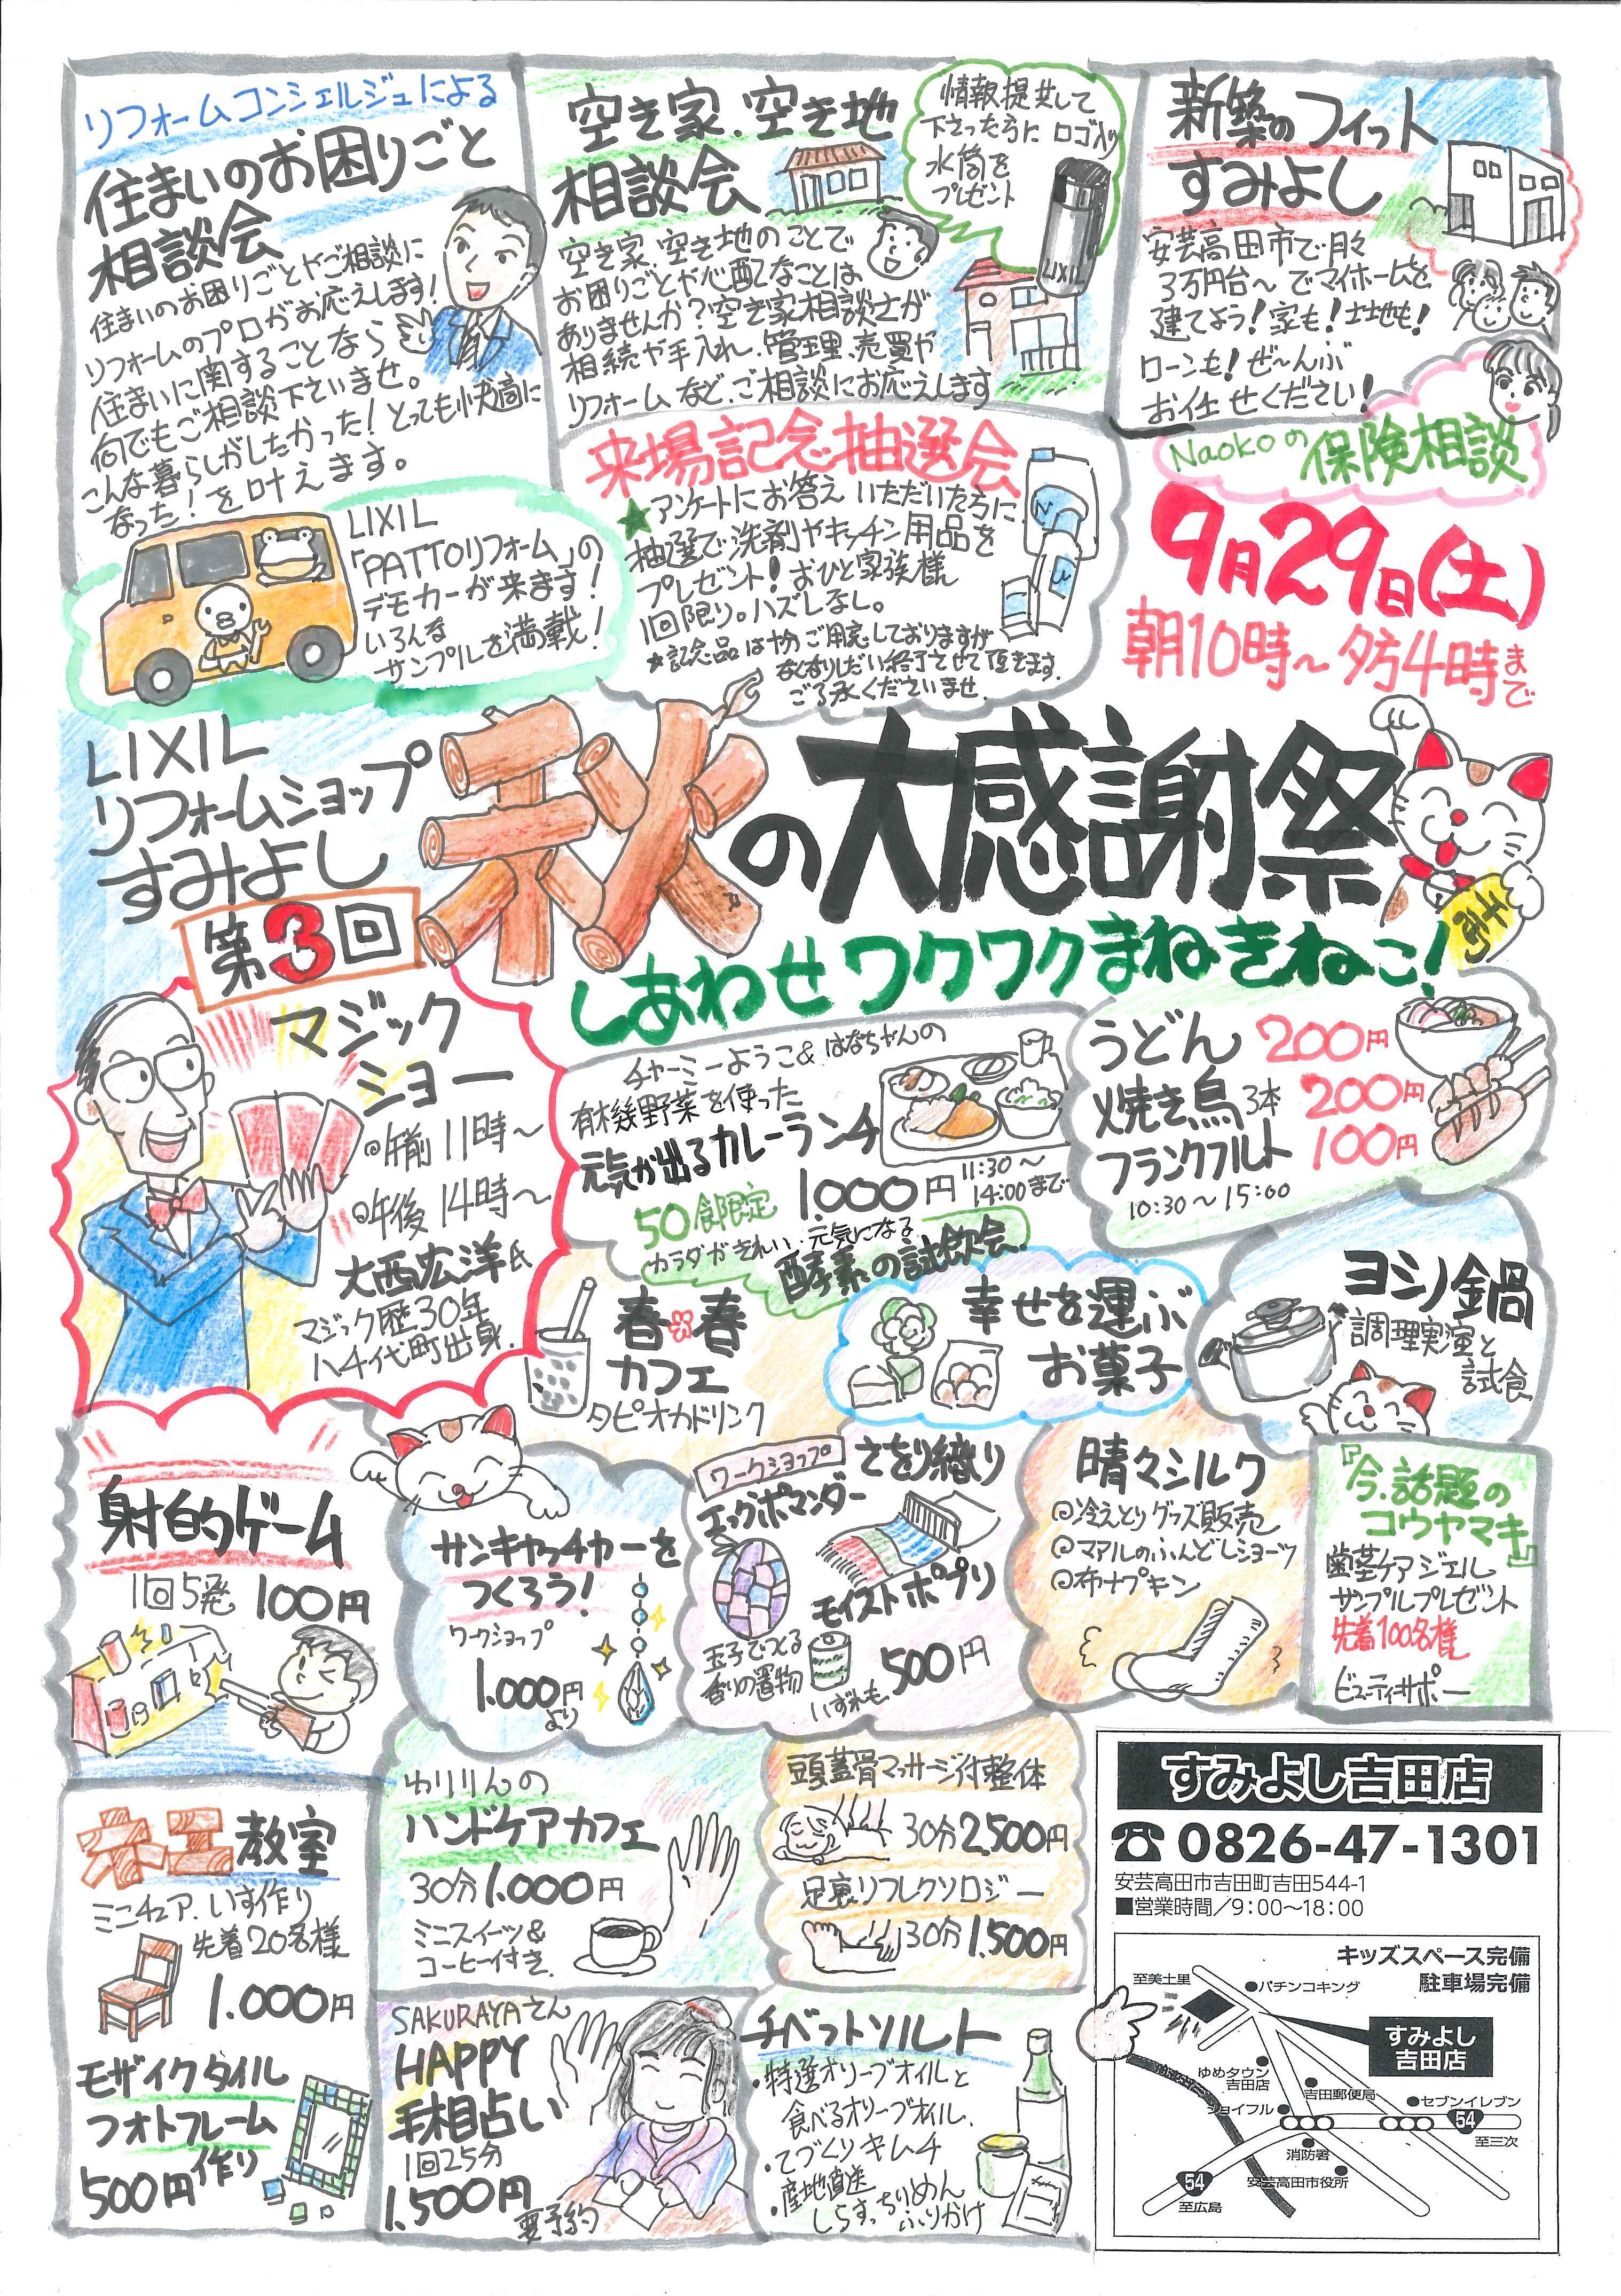 リフォームコンシェルジュによる
住まいのお困りごと
相談会
住まいのお困りごとやご相談に
リフォームのプロがお応えします!
住まいに関することなら
何でもご相談下さいませ。
こんな暮らしがしたかった!とっても快適に
なった!を叶えます。
LIXIL
「PATTOリフォーム」の
デモカーが来ます!
いろんな
サンプルを満載!
空き家.空き地
相談会
空き家.空き地のことで
お困りごとや心配なことは
ありませんか?空き家相談士が
相続や手入れ、管理、売買や
リフォームなど、ご相談にお応えします
情報提供して
下さった方に ロゴ入り
水筒を
プレゼント
LIXIL
新築のフィット
すみよし
安芸高田市で月々
3万円台~でマイホームを
建てよう!家も!土地も!
ローンも!ぜ~んぶ
お任せください!
Naokoの保険相談
来場記念抽選会
★アンケートにお答えいただいた方に
抽選で洗剤やキッチン用品を
プレゼント!おひと家族様
1回限り。ハズレなし。
★記念品は十分ご用意しておりますが
なくなりしだい終了させて頂きます。
ご了承くださいませ.
9月29日(土)
朝10時~夕方4時まで
LIXIL
リフォームショップ
すみよし
第3回
秋の大感謝祭
しあわせワクワクまねきねこ!
マジック
ショー
◎午前11時~
◎午後14時~
大西広洋氏
マジック歴30年
八千代町出身.
チャーミーようこ&はなちゃんの
有機野菜を使った
元気が出るカレーランチ
1.000円 11:30~
14:00まで
50食限定
カラダがきれい・元気になる
酵素の試飲会.
うどん 200円
焼き鳥3本 200円
フランクフルト 100円
10:30~15:00
春春
カフェ
タピオカドリンク
幸せを運ぶ
お菓子
ヨシノ鍋
調理実演と
試食
射的ゲーム
1回5発 100円
サンキャッチャーを
つくろう!
ワークショップ
1.000円より
ワークショップ さをり織り
エッグポマンダー
玉子でつくる
香りの置物
モイストポプリ
いずれも 500円
晴々シルク
◎冷えとりグッズ販売
◎マアルのふんどしショーツ
◎布ナプキン
『今.話題の
コウヤマキ』
歯茎ケアジェル
サンプルプレゼント
先着100名様
ビューティサポー
木工教室
ミニチュア.いす作り
先着20名様
1.000円
モザイクタイル
フォトフレーム
作り
500円
ゆりりんの
ハンドケアカフェ
30分1.000円
ミニスイーツ&
コーヒー付き.
頭蓋骨マッサージ付整体
30分2.500円
足裏リフレクソロジー
30分1.500円
SAKURAYAさん
HAPPY
手相占い
1回25分
1.500円
要予約
チベットソルト
・特選オリーブオイルと
食べるオリーブオイル.
・てづくりキムチ
・産地直送
しらす.ちりめん
ふりかけ
すみよし吉田店
☎0826-47-1301
安芸高田市吉田町吉田544-1
■営業時間/9:00~18:00
キッズスペース完備
駐車場完備
至美土里
パチンコキング
すみよし
吉田店
ゆめタウン
吉田店
吉田郵便局
セブンイレブン
ジョイフル
54
至三次
消防署
安芸高田市役所
54
至広島